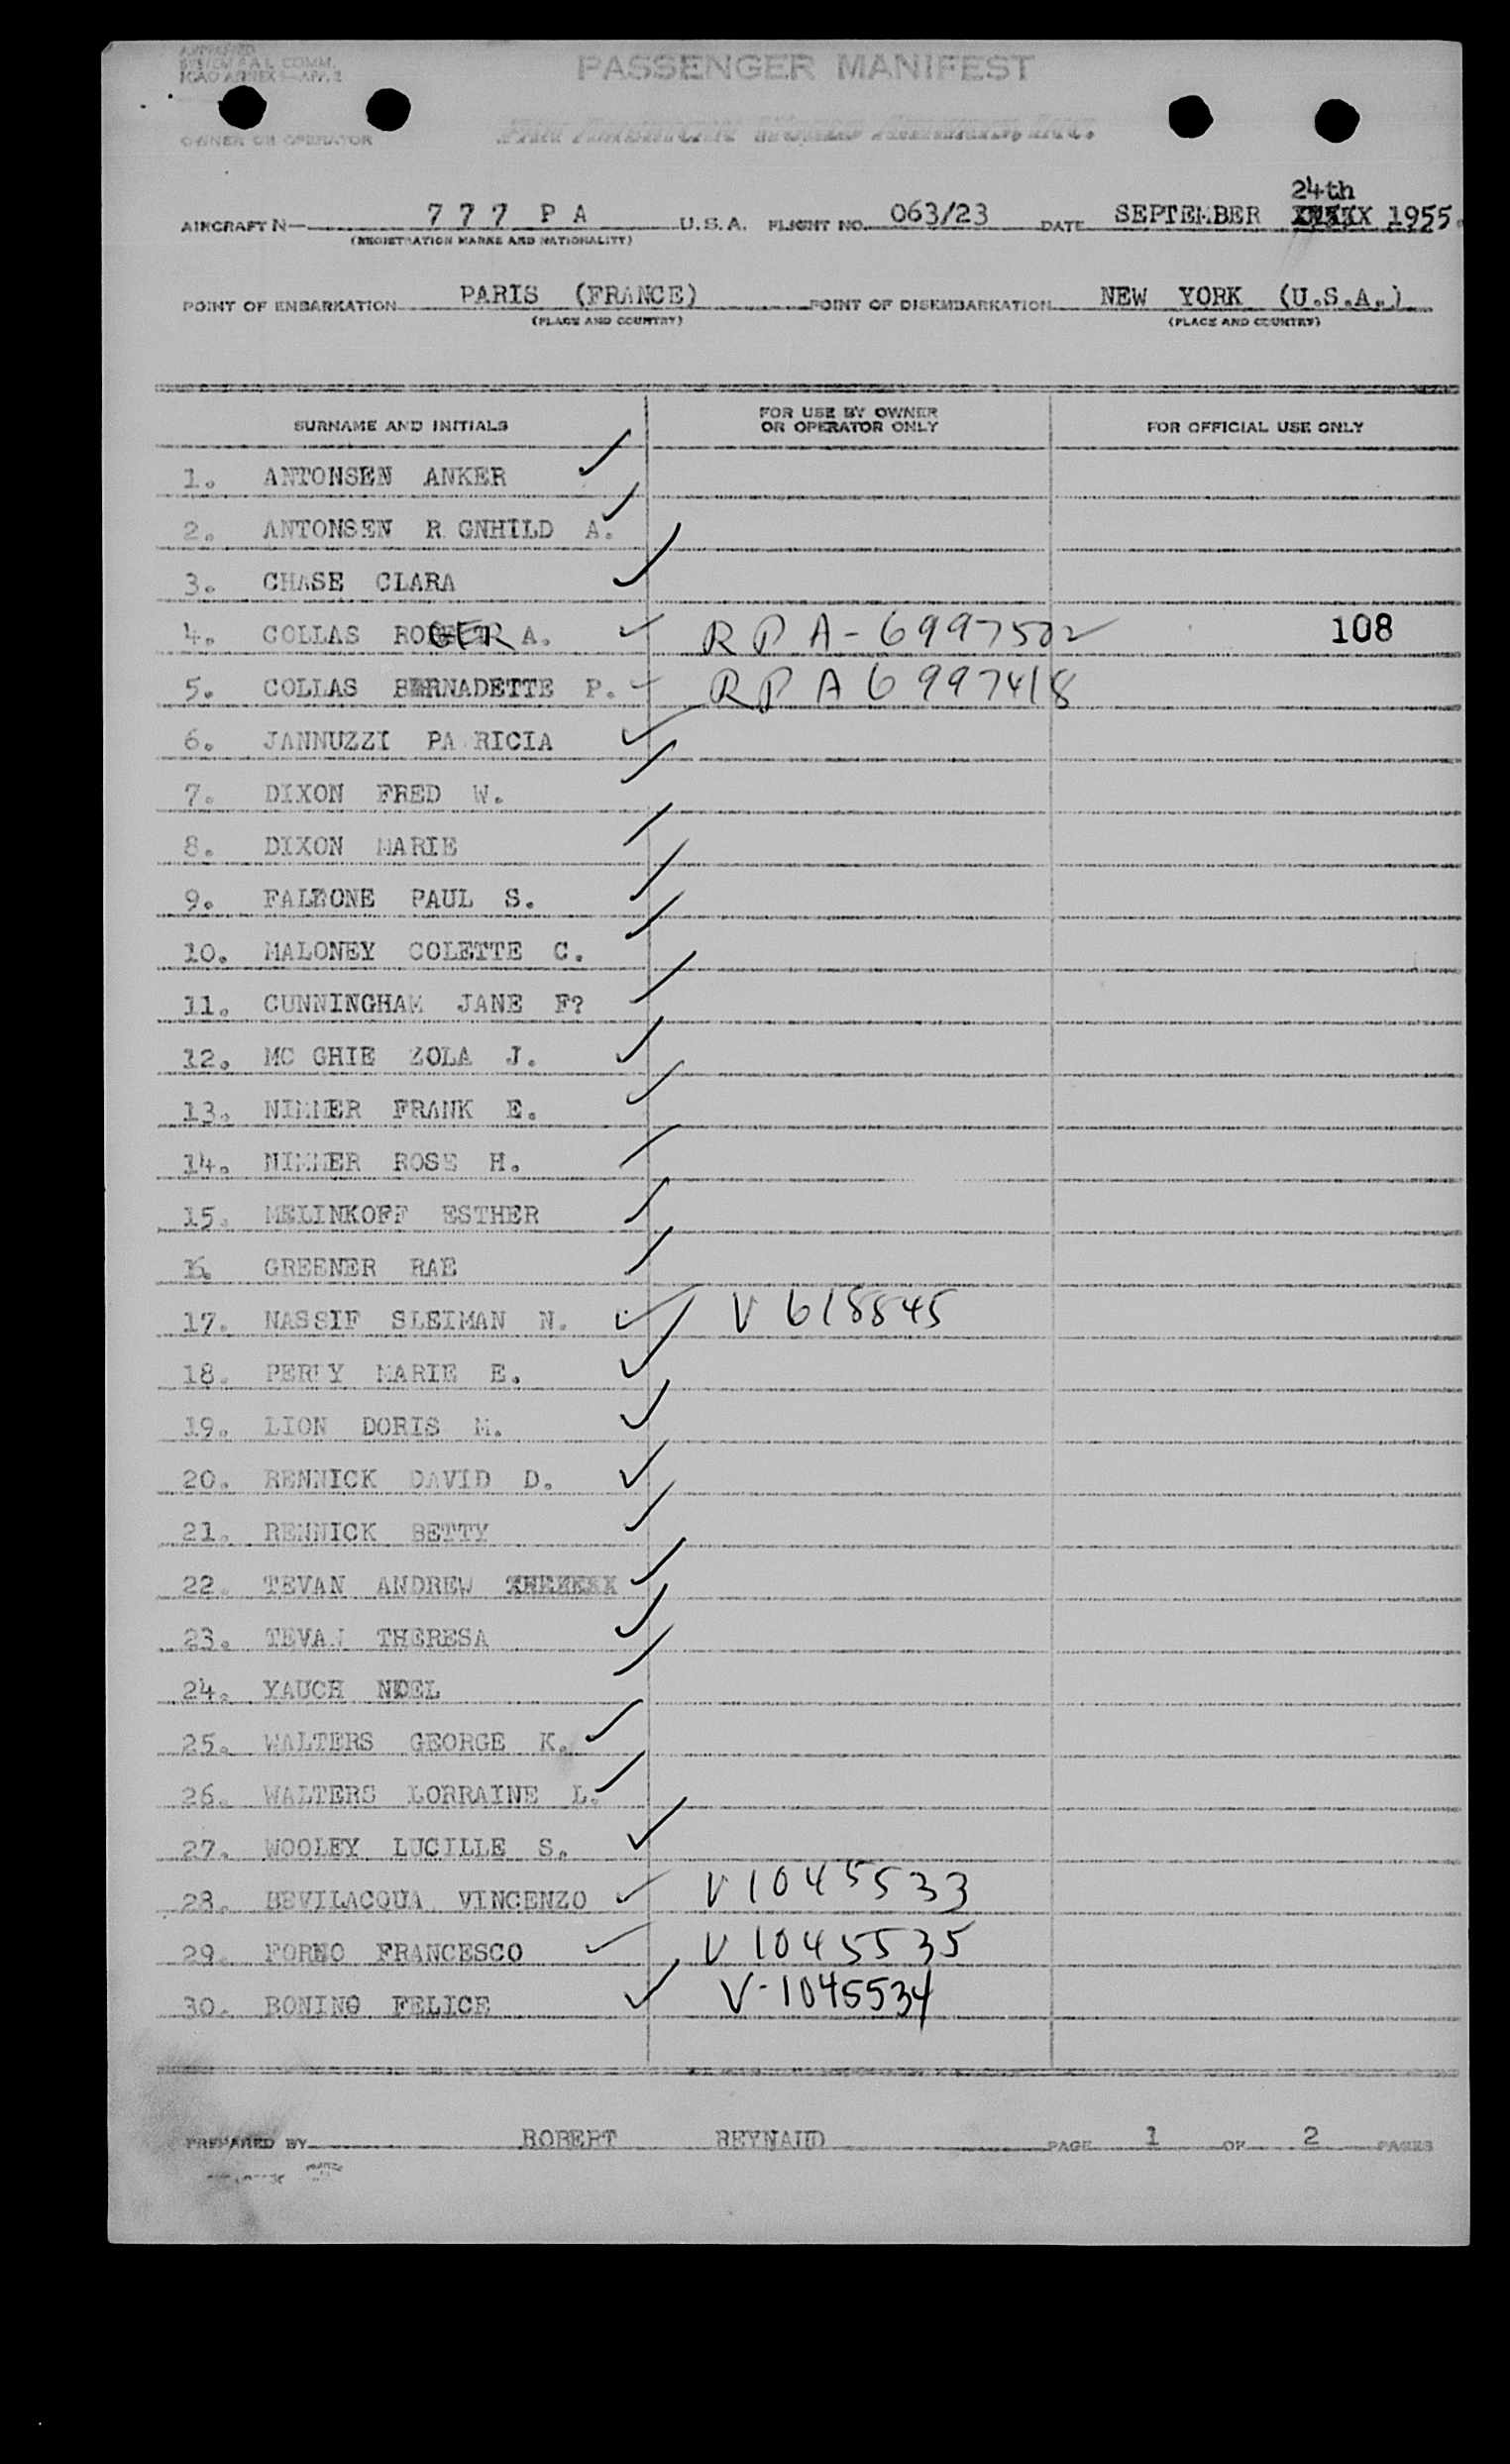 APPROVED
SYSTEM F.A.L. COMM.
ICAO ANNEX 9—APP. 2
PASSENGER MANIFEST
OWNER OR OPERATOR Pan American World Airways, Inc.
24th
AIRCRAFT N— 777 PA U.S.A. FLIGHT NO. 063/23 DATE SEPTEMBER 1955.
(REGISTRATION MARKS AND NATIONALITY)
POINT OF EMBARKATION PARIS (FRANCE) POINT OF DISEMBARKATION NEW YORK (U.S.A.)
(PLACE AND COUNTRY) (PLACE AND COUNTRY)
SURNAME AND INITIALS FOR USE BY OWNER OR OPERATOR ONLY FOR OFFICIAL USE ONLY
1. ANTONSEN ANKER
2. ANTONSEN R GNHILD A.
3. CHASE CLARA
4. COLLAS ROGER A. RPA-6997502 108
5. COLLAS BERNADETTE P. RPA6997418
6. JANNUZZI PA RICIA
7. DIXON FRED W.
8. DIXON MARIE
9. FALEONE PAUL S.
10. MALONEY COLETTE C.
11. CUNNINGHAM JANE F?
12. MC GHIE ZOLA J.
13. NIMMER FRANK E.
14. NIMMER ROSE H.
15. MELINKOFF ESTHER
16. GREENER RAE
17. NASSIF SLEIMAN N. V 618845
18. MARIE E.
19. LION DORIS M.
20. RENNICK DAVID D.
21. RENNICK BETTY
22. TEVAN ANDREW
23. TEVAN THERESA
24. YAUCH NOEL
25. WALTERS GEORGE K.
26. WALTERS LORRAINE L.
27. WOOLEY LUCILLE S.
28. BEVILACQUA VINCENZO V1045533
29. FORNO FRANCESCO V1045535
30. BONINO FELICE V-1045534
PREPARED BY ROBERT REYNAUD PAGE 1 OF 2 PAGES